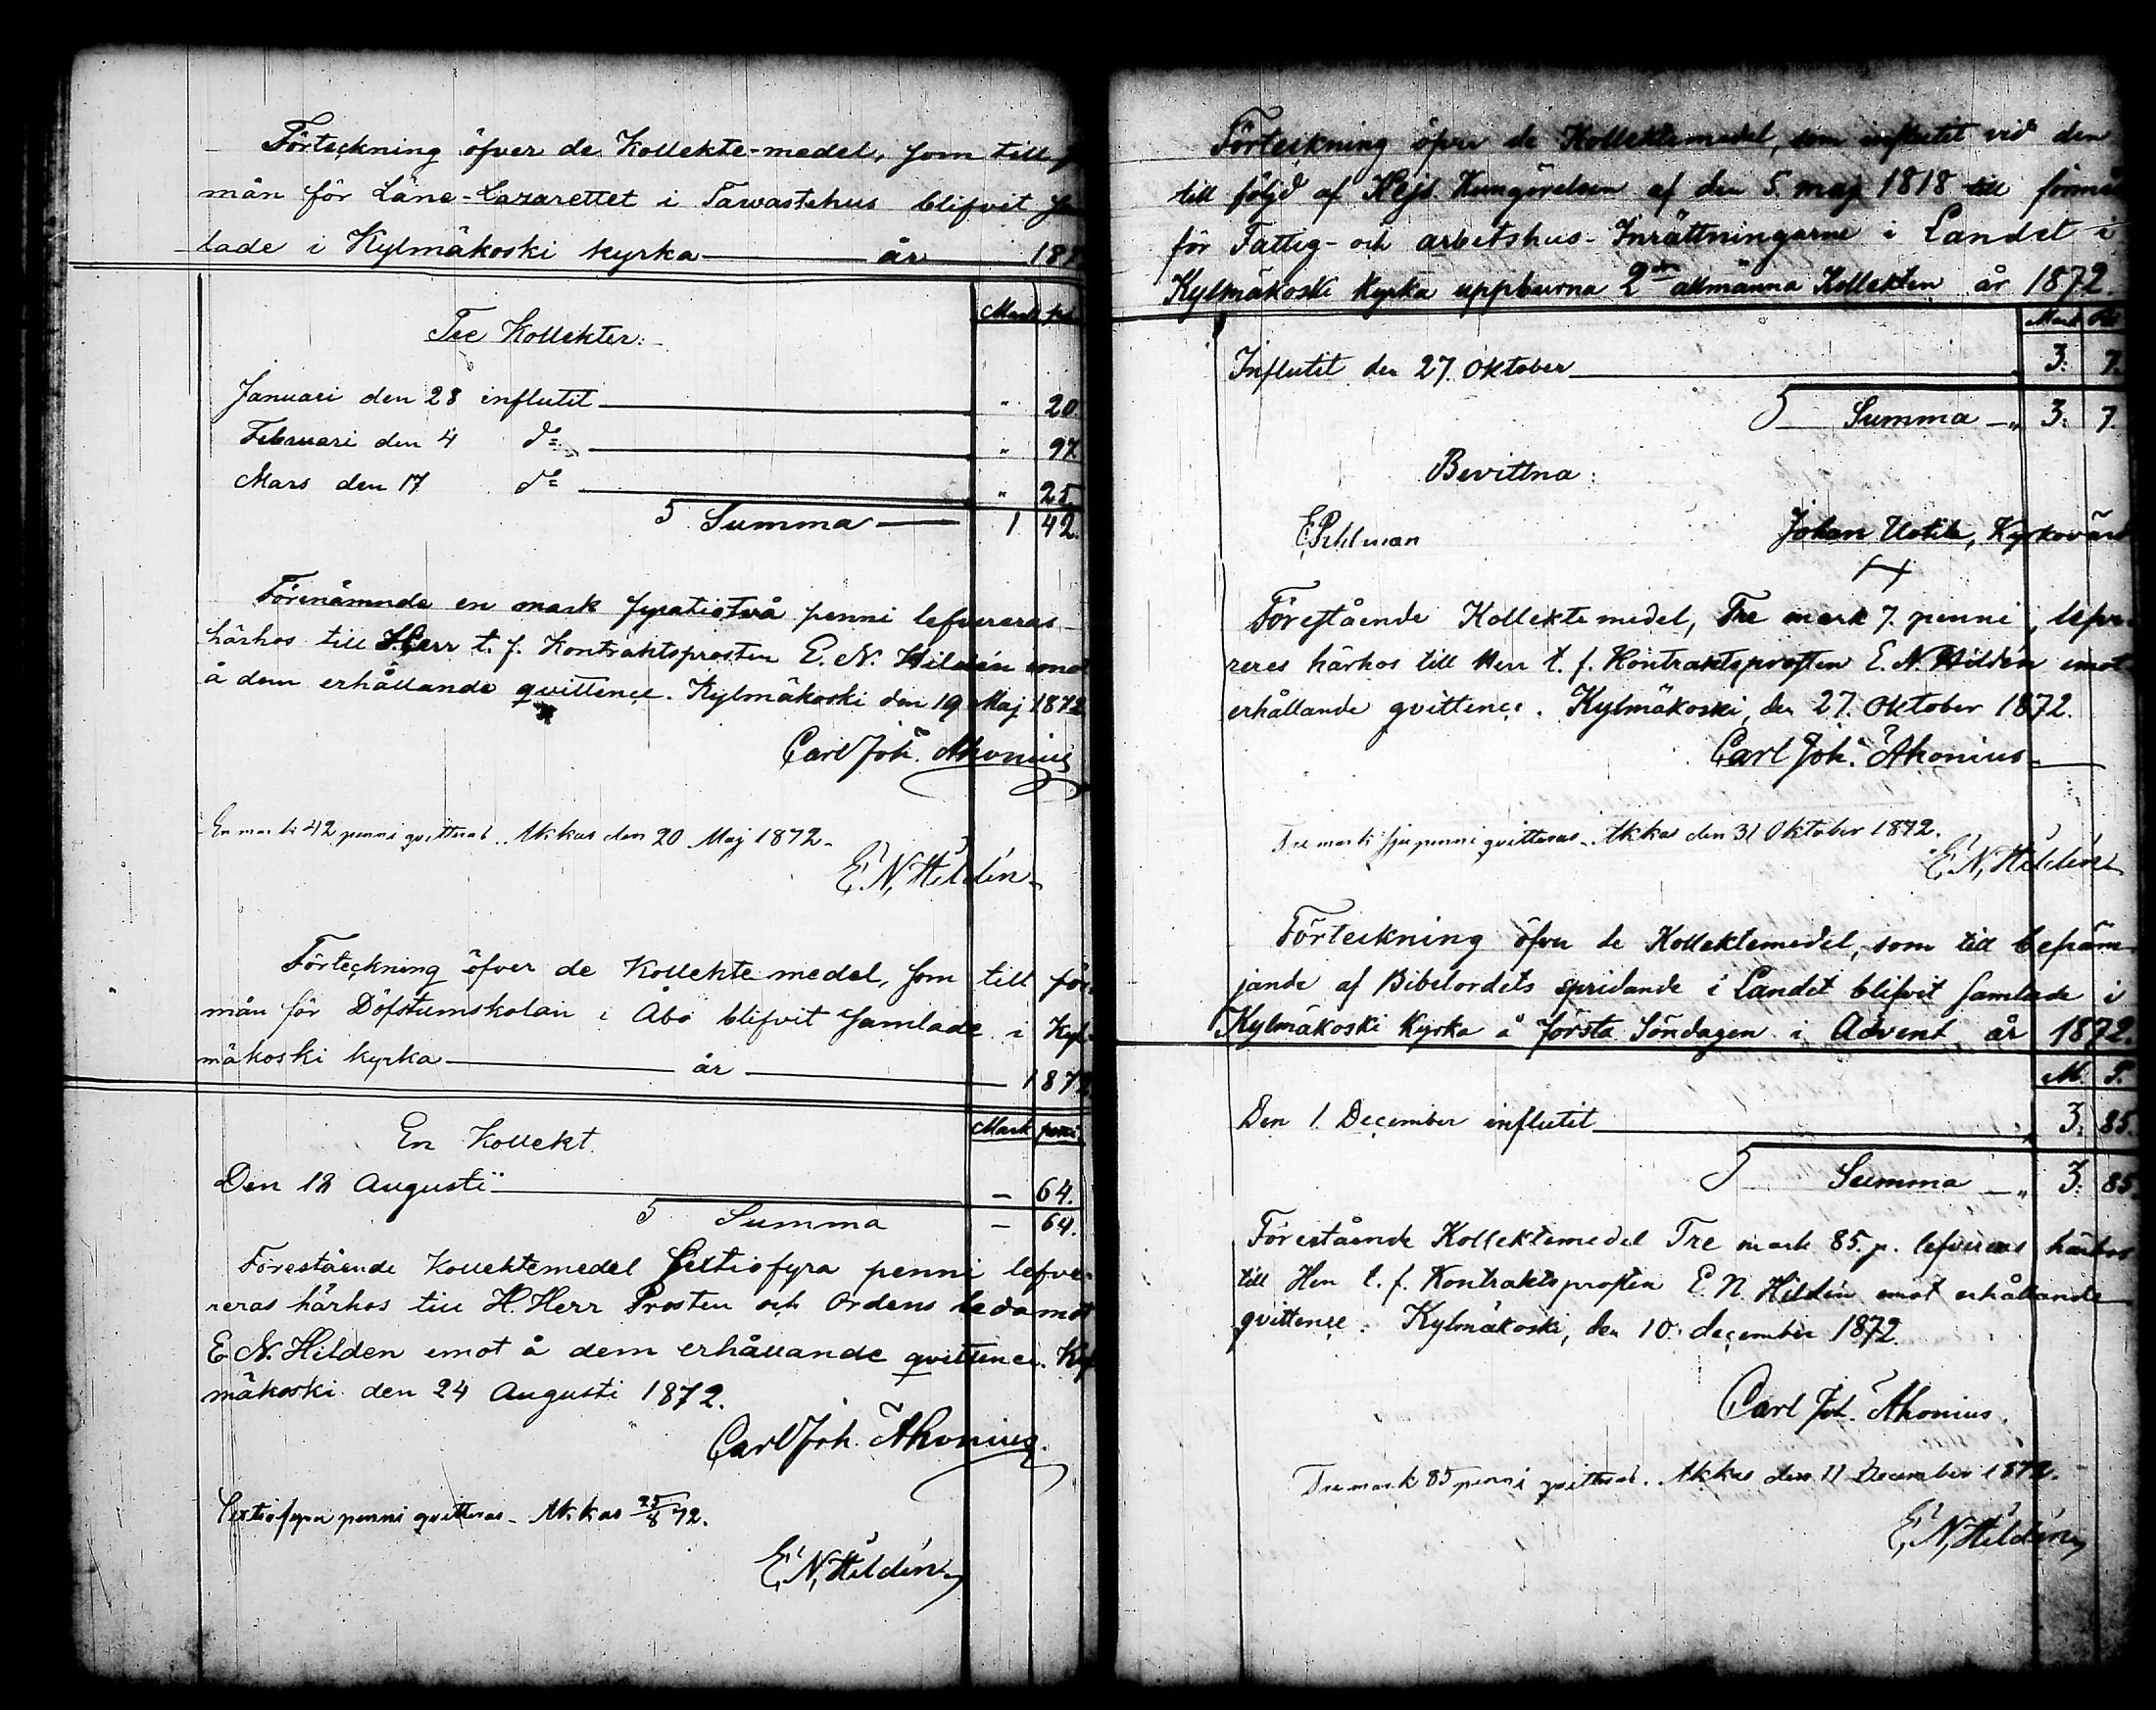 Förteckning öfver de Kollekte-medel, som till för
mån för Läne-Lazarettet i Tawastehus blifvit sam
lade i Kylmäkoski kyrka — år — 187
Mark pni
Tre Kollekter:
Januari den 28 influtit — " 20.
Februari den 4 do — " 97.
Mars den 17 do — " 25.
Summa — 1 42.
Förenämnde en mark fyratiotvå penni lefvereras
härhos till H. Herr t. f. Kontraktsprosten E. N. Hildén emot
å dem erhållande qvittence. Kylmäkoski den 19 Maj 1872
Carl Joh. Ahonius
En mark 42 penni qvitteras. Akkas den 20 Maj 1872.
E. N. Hildén
Förteckning öfver de Kollekte medel, som till för
mån för Döfstumskolan i Åbo blifvit samlade i Kyl-
mäkoski kyrka — år — 1872
Mark penni
En Kollekt.
Den 18 Augusti — – 64.
Summa – 64.
Förestående Kollektemedel Sextiofyra penni lefve-
reras härhos till H. Herr Prosten och Ordens ledamot
E. N. Hilden emot å dem erhållande qvittence. Kyl
mäkoski den 24 Augusti 1872.
Carl Joh. Ahonius.
Sextiofyra penni qvitteras. Akkas 25/8 72.
E. N. Hildén
Förteckning öfver de Kollektemedel, som influtit vid den
till följd af Kejs. Kungörelsen af den 5. maj 1818 till förmå
för Fattig- och arbetshus-Inrättningarne i Landet i
Kylmäkoski Kyrka uppburna 2dra allmänna Kollekten år 1872.
Mark Pni
Influtit den 27. Oktober — 3: 7.
Summa — " 3: 7.
Bevittna:
E Pihlman Johan Uotila, Kyrkovärd
Förestående Kollektemedel, Tre mark 7. penni, lefve-
reres härhos till Herr t. f. Kontraktsprosten E. N. Hildén emot
erhållande qvittence. Kylmäkoski, den 27. Oktober 1872.
Carl Joh. Ahonius
Tre mark sju penni qvitteras. Akkas den 31 Oktober 1872.
E. N. Hildén
Förteckning öfver de Kollektemedel, som till befräm-
jande af Bibelordets spridande i Landet blifvit samlade i
Kylmäkoski Kyrka å första Söndagen i Advent år 1872.
M. P.
Den 1. December influtit — 3. 85.
Summa — " 3: 85.
Förestående Kollektemedel Tre mark 85. p. lefvereras härhos
till Herr t. f. Kontraktsprosten E. N. Hildén emot erhållande
qvittence. Kylmäkoski, den 10. december 1872.
Carl Joh. Ahonius.
Tre mark 85 penni qvitteras. Akkas den 11 December 1872.
E. N. Hildén